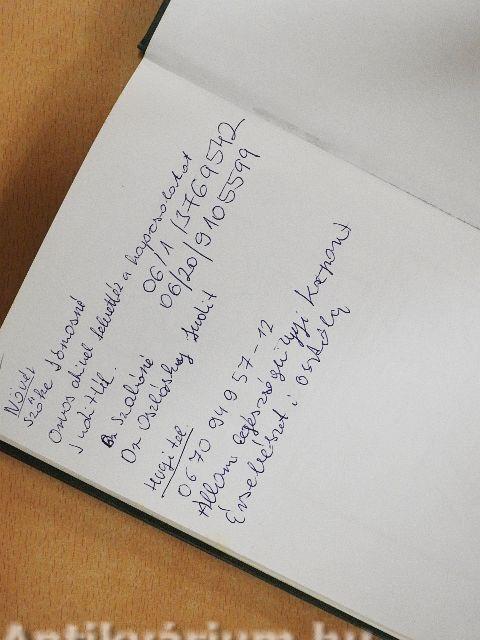 Nővér
Szőke Tamásné
Orvos akivel felvettéz a kapcsolatot
Judittól.
06/1/3769542
06/20/9105599
Szabóné
Dr Oszlánszky Judit
Hugi tel.
06 70 94 9 57-12
Állami egészségügyi Központ
Érsebészeti osztály
Antikvárium.hu